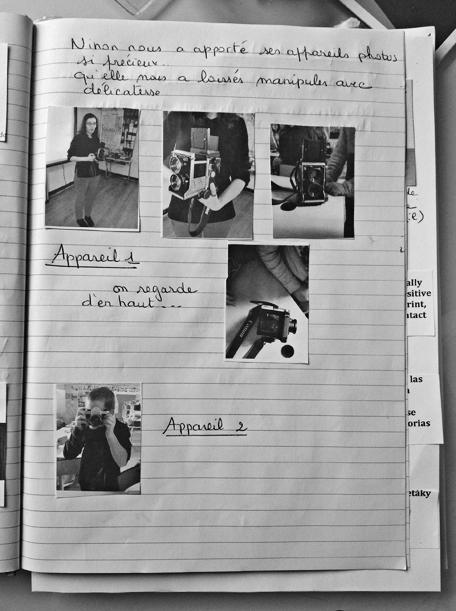 Ninon nous a apporté ses appareils photos
si précieux...
qu'elle nous a laissés manipuler avec
délicatesse
Appareil 1
on regarde
d'en haut...
Appareil 2
ally
sitive
rint,
ntact
las
se
orias
etáky